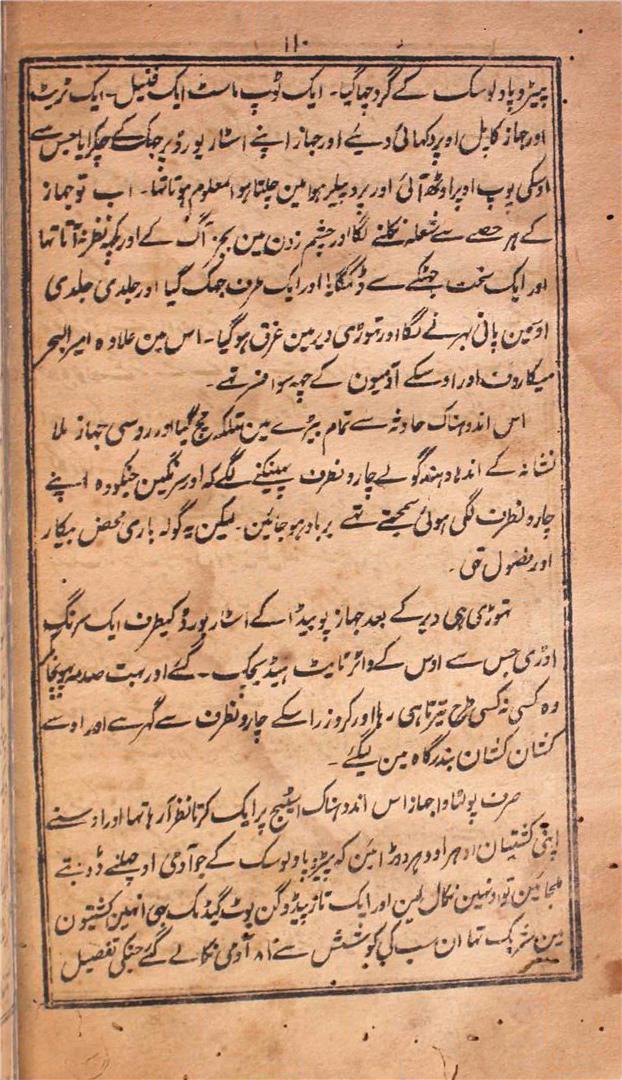 ۱۱۰
پیٹروپاولوسک کے گرد چھا گیا۔ ایک ٹوپ ماسٹ ایک فنیل۔ ایک
اور جہاز کا پل اوپر دکھائی دیئے اور جہاز اپنے اسٹاربورڈ پر جھک کے چکرایا جس سے
اوسکی پوپ اوپر اوٹھ آئی اور پروپیلر ہوا مین چلتا ہوا معلوم ہوتا تھا۔ اب تو جہاز
کے ہر حصے سے شعلہ نکلنے لگا اور چشم زدن مین بجز آگ کے اور کچھ نظر نہ آتا تھا
اور ایک سخت جھٹکے سے ڈگمگایا اور ایک طرف جھک گیا اور جلدی جلدی
اوسمین پانی بھرنے لگا اور تھوڑی دیر مین غرق ہو گیا۔ اس مین علاوہ امیر البحر
میکاروف اور اوسکے آدمیون کے چھہ سو افسر تھے۔
اس اندوہناک حادثہ سے تمام بیڑے مین تہلکہ مچ گیا اور روسی جہاز بلا
نشانہ کے اندھا دھند گولے چارونطرف پھینکنے لگے کہ اور سرنگین جنکو وہ اپنے
چارونطرف لگی ہوئی سمجھتے تھے برباد ہو جائین۔ لیکن یہ گولہ باری محض بیکار
اور فضول تھی۔
تھوڑی ہی دیر کے بعد جہاز پوبیڈا کے اسٹاربورڈ کیطرف ایک سرنگ
اوڑی جس سے اوس کے واٹر ٹایٹ ہیڈ پچک۔ گئے اور بہت صدمہ پہونچا
وہ کسی نہ کسی طرح تیرتا ہی رہا اور کروزر اسکے چارونطرف سے گھرے اور اوسے
کشان کشان بندرگاہ مین لیگئے۔
صرف پولٹاوا جہاز اس اندوہناک اسٹیج پر ایک کرتا نظر آ رہا تھا اور اوسنے
اپنی کشتیان ادھر اودھر دوڑائین کہ پیٹروپاولوسک کے جو آدمی اوچھلتے ڈوبتے
ملجائین تو اونہین نکال لین اور ایک تارپیڈو گن بوٹ گیڈمک بھی انہین کشتیون
مین شریک تھا ان سب کی کوشش سے آدمی نکالے گئے جنکی تفصیل